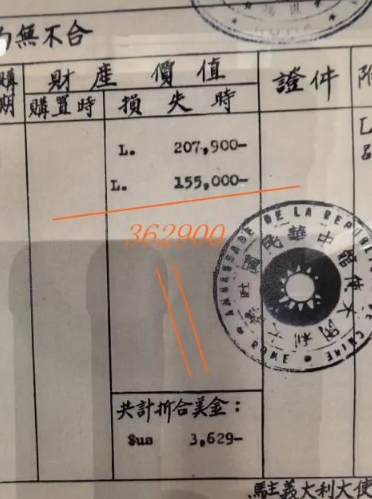 無不合
財產價值
證件
購置時
損失時
L. 207,900-
L. 155,000-
362900
AMBASSADE DE LA REPUBLIQUE DE CHINE
ROME
共計折合美金:
$us 3,629-
駐義大利大使